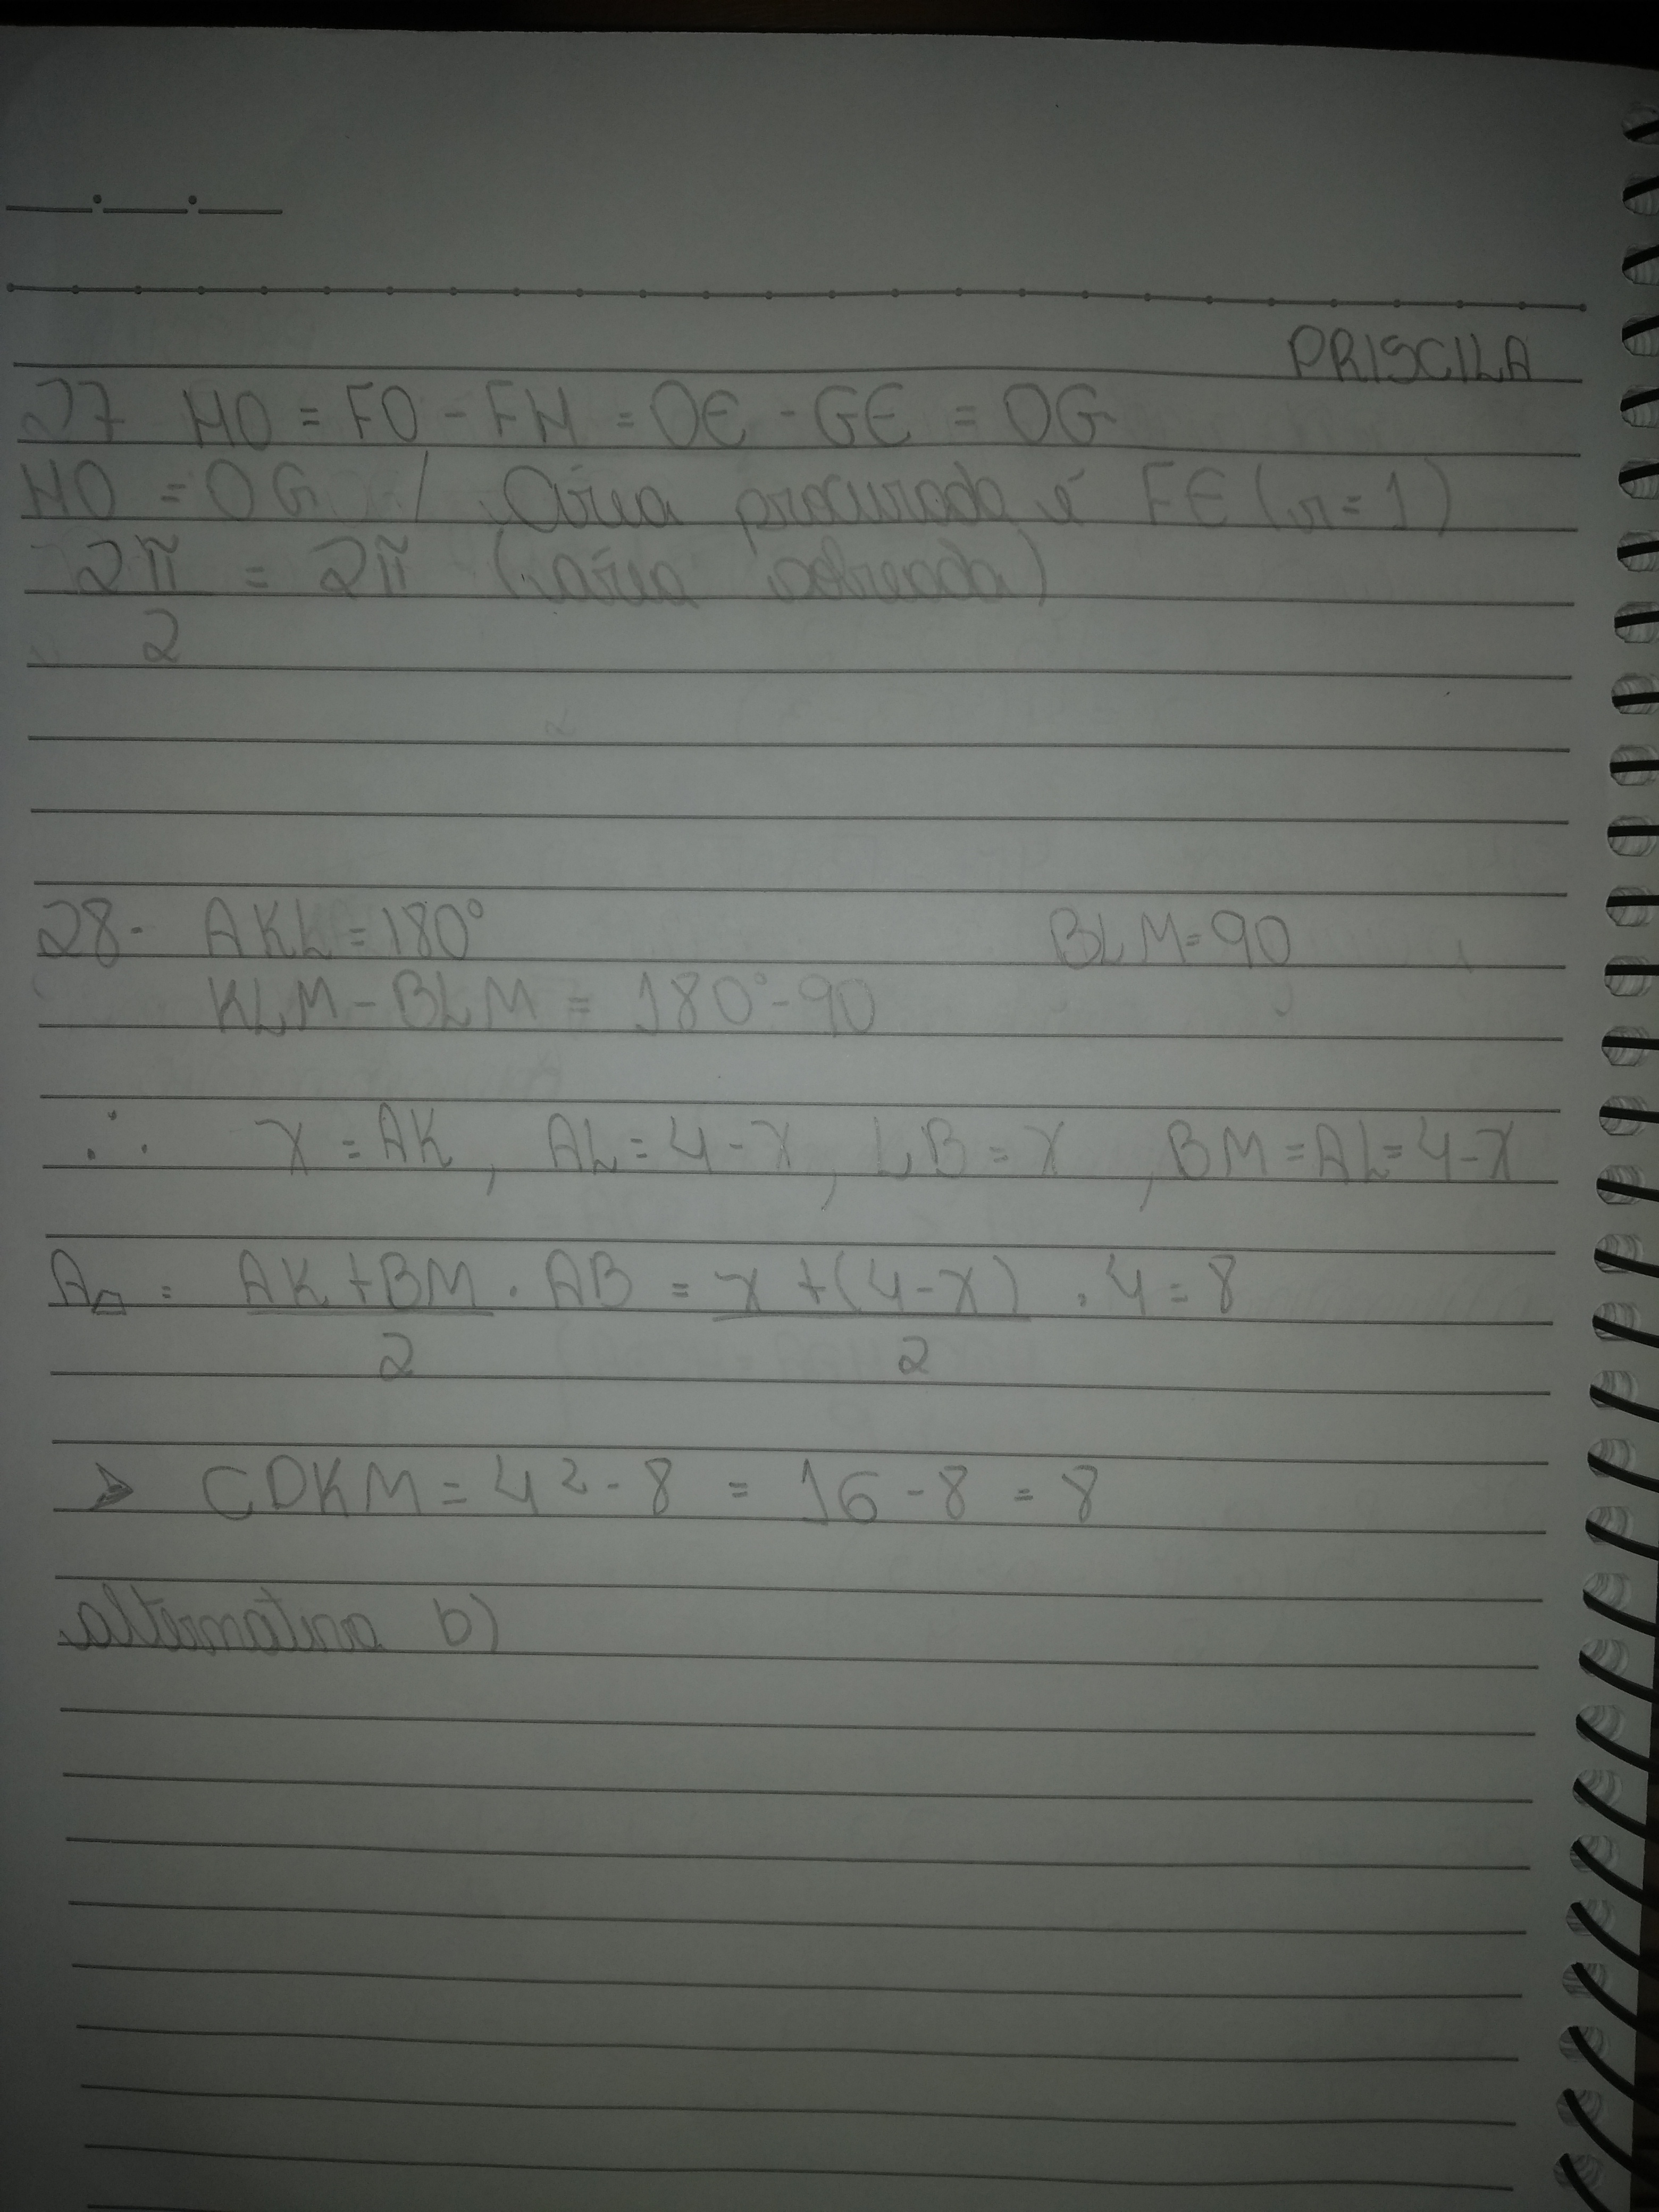 PRISCILA
27 HO = FO - FH = OE - GE = OG
HO = OG / Área procurada é FE (r=1)
2π = 2π (área
2
28- AKL = 180° BLM = 90
KLM - BLM = 180° - 90
∴ x = AK, AL = 4-x, LB = x, BM = AL = 4-x
A = AK + BM . AB = x + (4-x) . 4 = 8
2 2
➤ CDKM = 4² - 8 = 16 - 8 = 8
alternativa b)